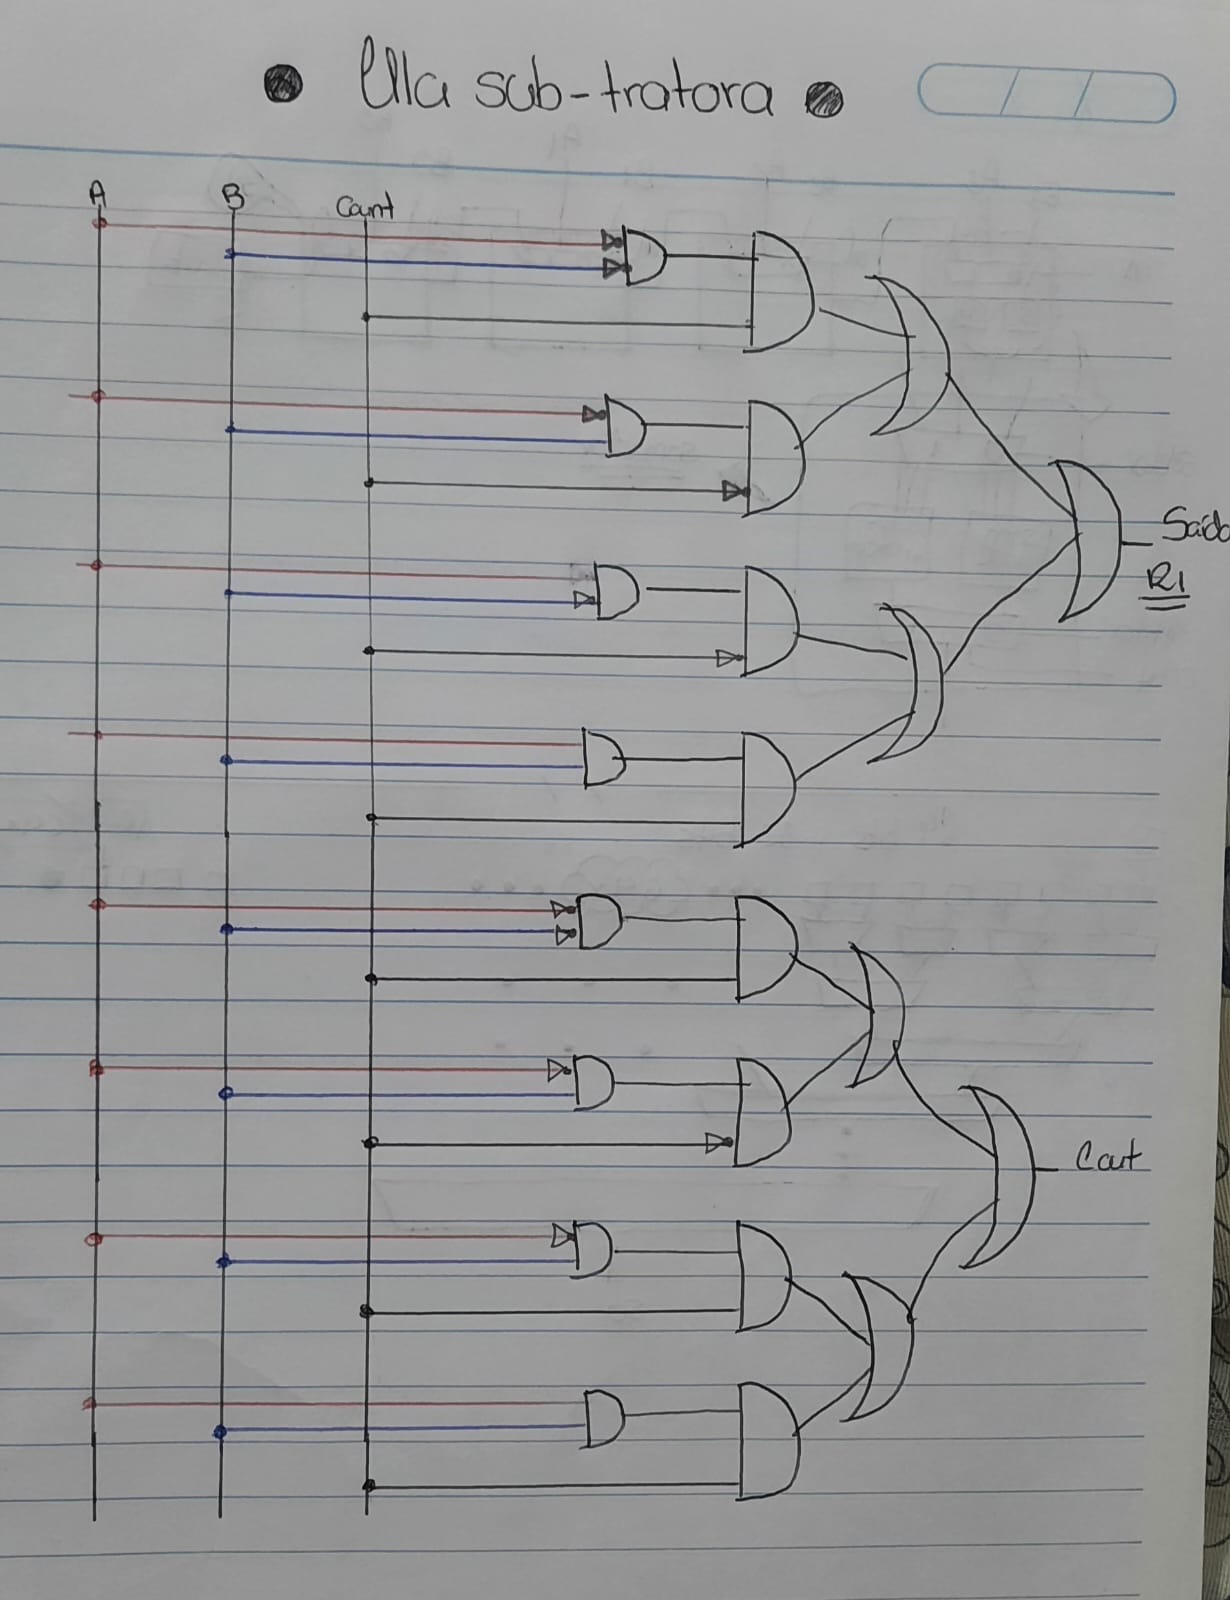 Ula sub-tratora
A B Cant
Saida
R1
Cout